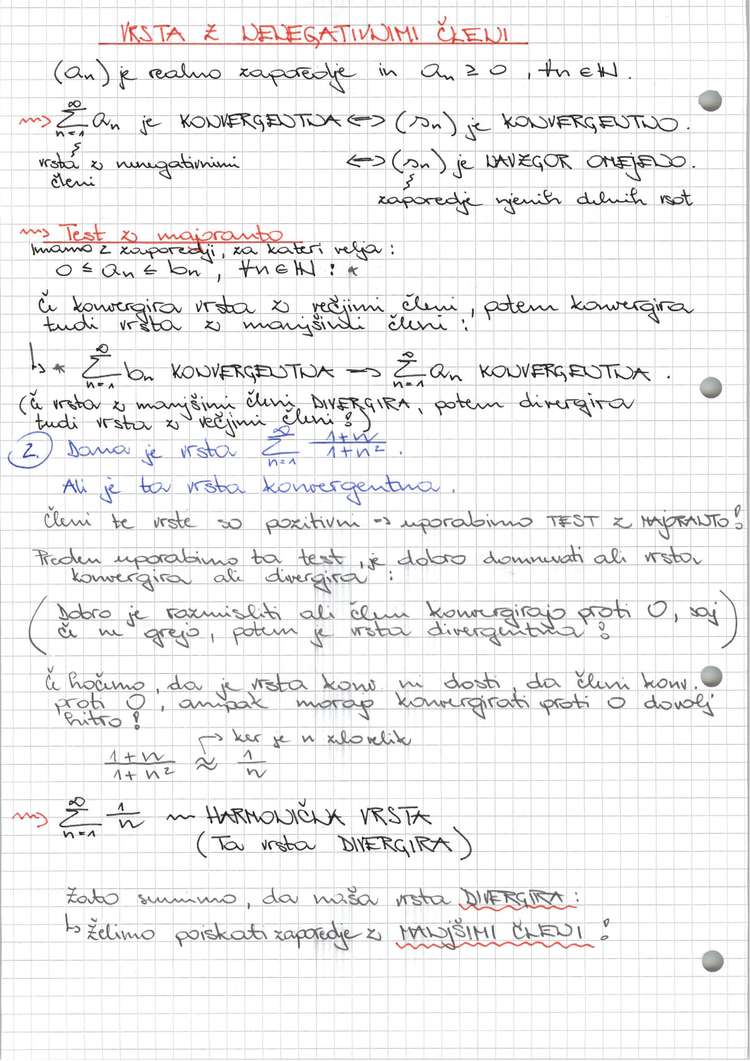 VRSTA Z NENEGATIVNIMI ČLENI
(an) je realno zaporedje in an ≥ 0, ∀n∈ℕ.
⟿ ∞∑n=1 an je KONVERGENTNA ⟷ (sn) je KONVERGENTNO.
vrsta z nenegativnimi členi ⟷ (sn) je NAVZGOR OMEJENO.
zaporedje njenih delnih vsot
⟿ Test z majoranto
Imamo 2 zaporedji, za kateri velja:
0 ≤ an ≤ bn, ∀n∈ℕ : *
Če konvergira vrsta z večjimi členi, potem konvergira
tudi vrsta z manjšimi členi:
↳ * ∞∑n=1 bn KONVERGENTNA → ∞∑n=1 an KONVERGENTNA.
(Če vrsta z manjšimi členi DIVERGIRA, potem divergira
tudi vrsta z večjimi členi!)
2. Dana je vrsta ∞∑n=1 (1+n)/(1+n²).
Ali je ta vrsta konvergentna.
Členi te vrste so pozitivni ⇒ uporabimo TEST Z MAJORANTO!
Preden uporabimo ta test, je dobro domnevati ali vrsta
konvergira ali divergira:
(Dobro je razmisliti ali členi konvergirajo proti 0, saj
če ne grejo, potem je vrsta divergentna!)
Če hočemo, da je vrsta konv. ni dosti, da členi konv.
proti 0, ampak morajo konvergirati proti 0 dovolj
hitro!
↱ ker je n zelo velik
(1+n)/(1+n²) ≈ 1/n
⟿ ∞∑n=1 1/n ~ HARMONIČNA VRSTA
(Ta vrsta DIVERGIRA)
Zato sumimo, da naša vrsta DIVERGIRA:
↳ želimo poiskati zaporedje z MANJŠIMI ČLENI!